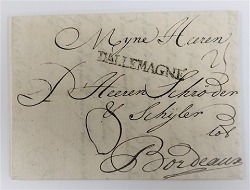 Myne Heeren
D'ALLEMAGNE
Heeren Schröder
& Schÿler
tot
Bordeaux